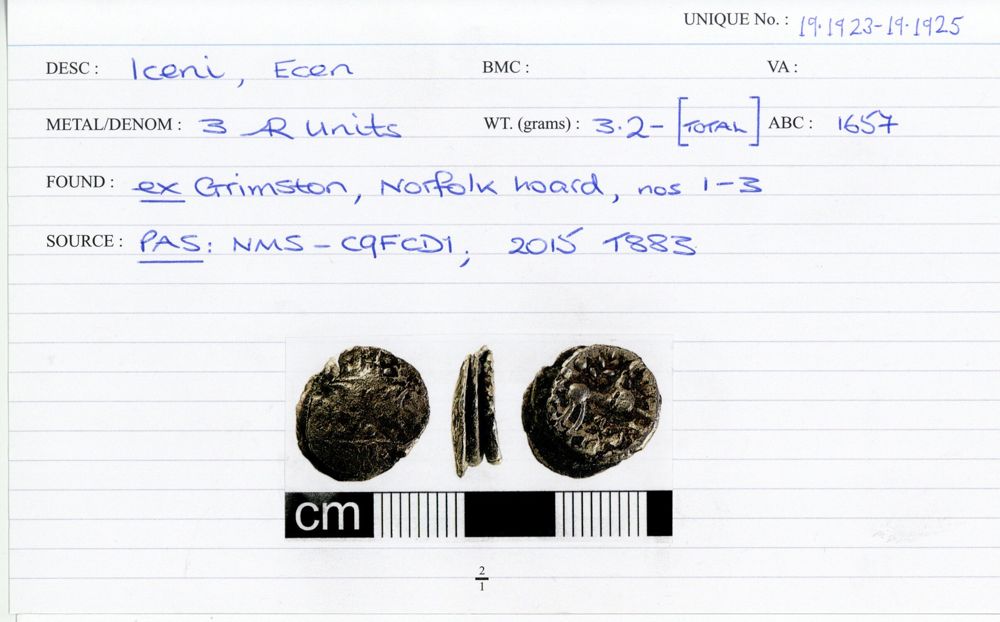 UNIQUE No. : 19.1923-19.1925
DESC : Iceni, Ecen BMC : VA :
METAL/DENOM : 3 AR Units WT. (grams) : 3.2- [TOTAL] ABC : 1657
FOUND : ex Grimston, Norfolk hoard, nos 1-3
SOURCE : PAS: NMS-C9FCD1; 2015 T883
cm
2
1